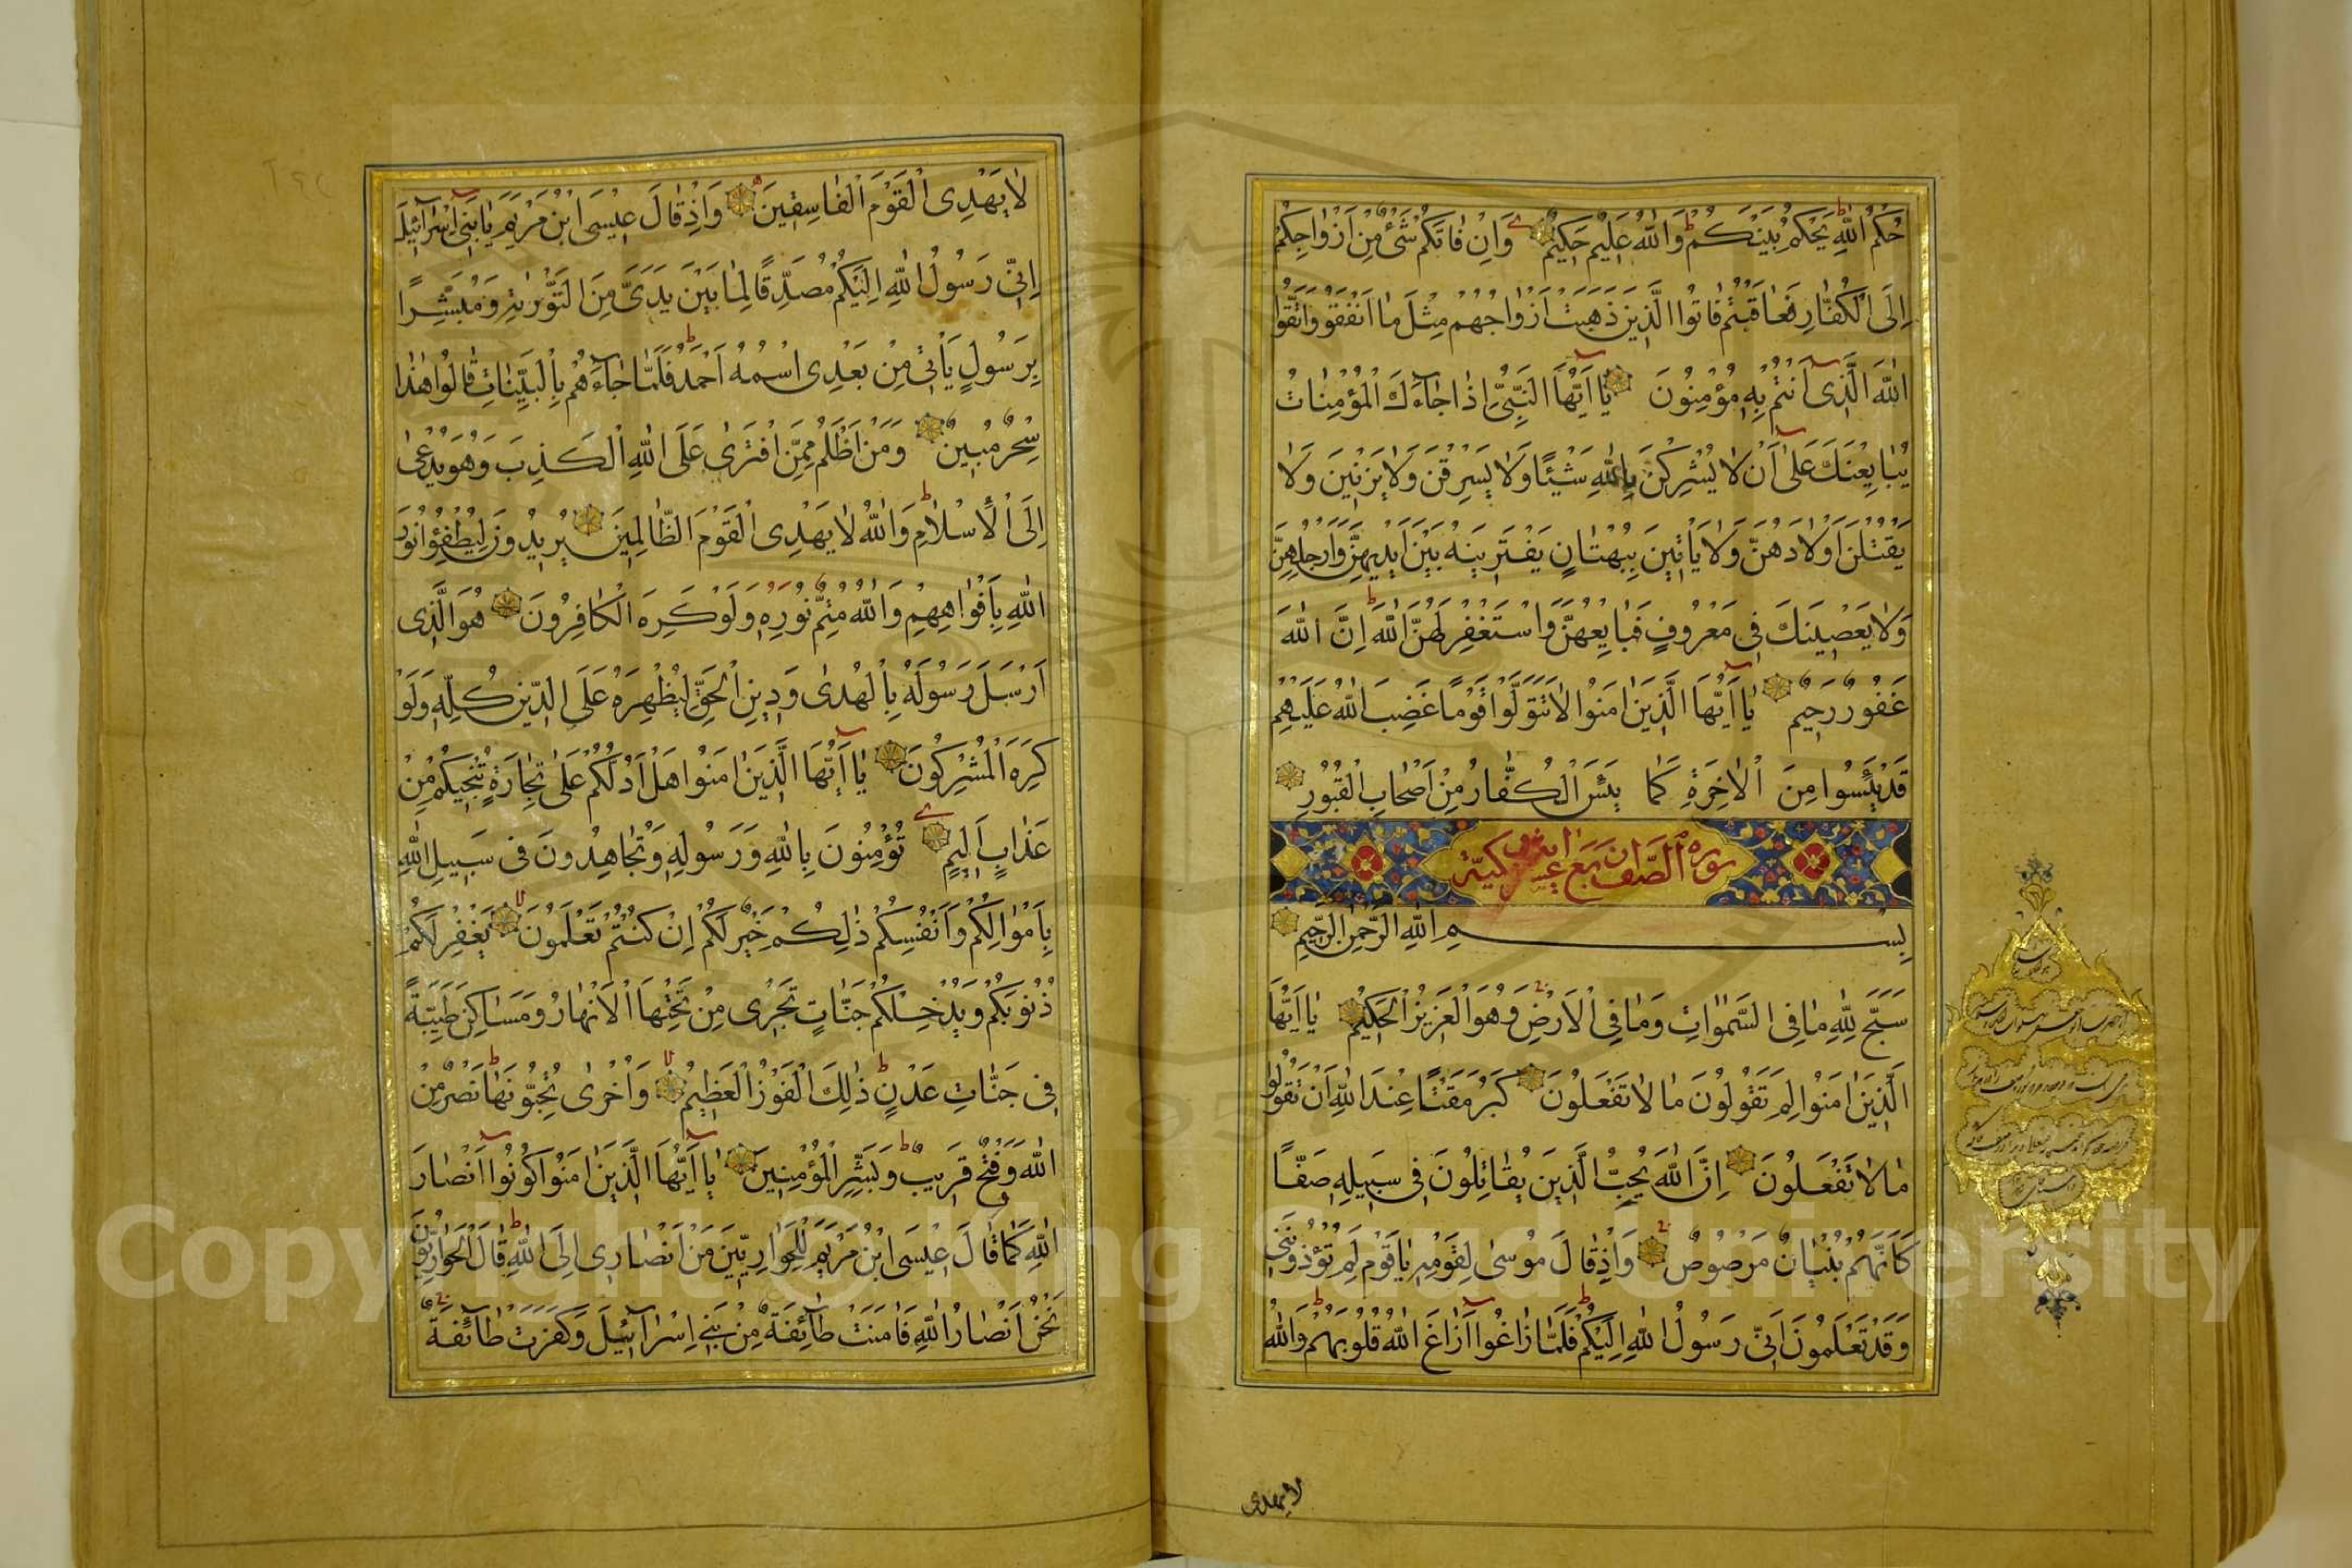 حُكْمُ اللّٰهِ يَحْكُمُ بَيْنَكُمْ وَاللّٰهُ عَلِيمٌ حَكِيمٌ وَاِنْ فَاتَكُمْ شَيْءٌ مِنْ اَزْوَاجِكُمْ
اِلَى الْكُفَّارِ فَعَاقَبْتُمْ فَاٰتُوا الَّذِينَ ذَهَبَتْ اَزْوَاجُهُمْ مِثْلَ مَا اَنْفَقُوا وَاتَّقُوا
اللّٰهَ الَّذِى اَنْتُمْ بِهِ مُؤْمِنُونَ يَا اَيُّهَا النَّبِيُّ اِذَا جَاءَكَ الْمُؤْمِنَاتُ
يُبَايِعْنَكَ عَلٰى اَنْ لَا يُشْرِكْنَ بِاللّٰهِ شَيْئًا وَلَا يَسْرِقْنَ وَلَا يَزْنِينَ وَلَا
يَقْتُلْنَ اَوْلَادَهُنَّ وَلَا يَاْتِينَ بِبُهْتَانٍ يَفْتَرِينَهُ بَيْنَ اَيْدِيهِنَّ وَاَرْجُلِهِنَّ
وَلَا يَعْصِينَكَ فِى مَعْرُوفٍ فَبَايِعْهُنَّ وَاسْتَغْفِرْ لَهُنَّ اللّٰهَ اِنَّ اللّٰهَ
غَفُورٌ رَحِيمٌ يَا اَيُّهَا الَّذِينَ اٰمَنُوا لَا تَتَوَلَّوْا قَوْمًا غَضِبَ اللّٰهُ عَلَيْهِمْ
قَدْ يَئِسُوا مِنَ الْاٰخِرَةِ كَمَا يَئِسَ الْكُفَّارُ مِنْ اَصْحَابِ الْقُبُورِ
سوره الصف
بِسْمِ اللّٰهِ الرَّحْمٰنِ الرَّحِيمِ
سَبَّحَ لِلّٰهِ مَا فِى السَّمٰوَاتِ وَمَا فِى الْاَرْضِ وَهُوَ الْعَزِيزُ الْحَكِيمُ يَا اَيُّهَا
الَّذِينَ اٰمَنُوا لِمَ تَقُولُونَ مَا لَا تَفْعَلُونَ كَبُرَ مَقْتًا عِنْدَ اللّٰهِ اَنْ تَقُولُوا
مَا لَا تَفْعَلُونَ اِنَّ اللّٰهَ يُحِبُّ الَّذِينَ يُقَاتِلُونَ فِى سَبِيلِهِ صَفًّا
كَاَنَّهُمْ بُنْيَانٌ مَرْصُوصٌ وَاِذْ قَالَ مُوسٰى لِقَوْمِهِ يَا قَوْمِ لِمَ تُؤْذُونَنِى
وَقَدْ تَعْلَمُونَ اَنِّى رَسُولُ اللّٰهِ اِلَيْكُمْ فَلَمَّا زَاغُوا اَزَاغَ اللّٰهُ قُلُوبَهُمْ وَاللّٰهُ
لا يهدى
لَا يَهْدِى الْقَوْمَ الْفَاسِقِينَ وَاِذْ قَالَ عِيسَى ابْنُ مَرْيَمَ يَا بَنِى اِسْرَائِيلَ
اِنِّى رَسُولُ اللّٰهِ اِلَيْكُمْ مُصَدِّقًا لِمَا بَيْنَ يَدَيَّ مِنَ التَّوْرٰيةِ وَمُبَشِّرًا
بِرَسُولٍ يَاْتِى مِنْ بَعْدِى اسْمُهُ اَحْمَدُ فَلَمَّا جَاءَهُمْ بِالْبَيِّنَاتِ قَالُوا هٰذَا
سِحْرٌ مُبِينٌ وَمَنْ اَظْلَمُ مِمَّنِ افْتَرٰى عَلَى اللّٰهِ الْكَذِبَ وَهُوَ يُدْعٰى
اِلَى الْاِسْلَامِ وَاللّٰهُ لَا يَهْدِى الْقَوْمَ الظَّالِمِينَ يُرِيدُونَ لِيُطْفِؤُا نُورَ
اللّٰهِ بِاَفْوَاهِهِمْ وَاللّٰهُ مُتِمُّ نُورِهِ وَلَوْ كَرِهَ الْكَافِرُونَ هُوَ الَّذِى
اَرْسَلَ رَسُولَهُ بِالْهُدٰى وَدِينِ الْحَقِّ لِيُظْهِرَهُ عَلَى الدِّينِ كُلِّهِ وَلَوْ
كَرِهَ الْمُشْرِكُونَ يَا اَيُّهَا الَّذِينَ اٰمَنُوا هَلْ اَدُلُّكُمْ عَلٰى تِجَارَةٍ تُنْجِيكُمْ مِنْ
عَذَابٍ اَلِيمٍ تُؤْمِنُونَ بِاللّٰهِ وَرَسُولِهِ وَتُجَاهِدُونَ فِى سَبِيلِ اللّٰهِ
بِاَمْوَالِكُمْ وَاَنْفُسِكُمْ ذٰلِكُمْ خَيْرٌ لَكُمْ اِنْ كُنْتُمْ تَعْلَمُونَ يَغْفِرْ لَكُمْ
ذُنُوبَكُمْ وَيُدْخِلْكُمْ جَنَّاتٍ تَجْرِى مِنْ تَحْتِهَا الْاَنْهَارُ وَمَسَاكِنَ طَيِّبَةً
فِى جَنَّاتِ عَدْنٍ ذٰلِكَ الْفَوْزُ الْعَظِيمُ وَاُخْرٰى تُحِبُّونَهَا نَصْرٌ مِنَ
اللّٰهِ وَفَتْحٌ قَرِيبٌ وَبَشِّرِ الْمُؤْمِنِينَ يَا اَيُّهَا الَّذِينَ اٰمَنُوا كُونُوا اَنْصَارَ
اللّٰهِ كَمَا قَالَ عِيسَى ابْنُ مَرْيَمَ لِلْحَوَارِيِّينَ مَنْ اَنْصَارِى اِلَى اللّٰهِ قَالَ الْحَوَارِيُّونَ
نَحْنُ اَنْصَارُ اللّٰهِ فَاٰمَنَتْ طَائِفَةٌ مِنْ بَنِى اِسْرَائِيلَ وَكَفَرَتْ طَائِفَةٌ
Copyright © King Saud University